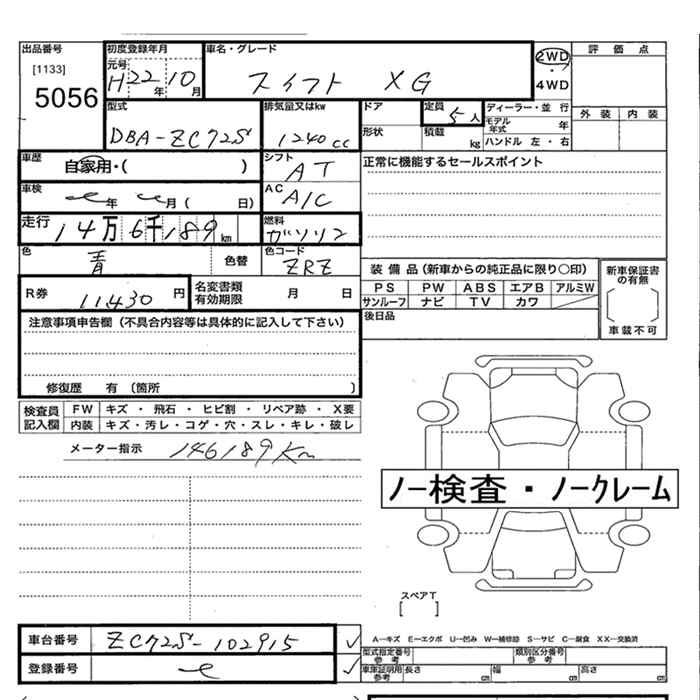 出品番号
[1133]
5056
初度登録年月
元号
H22年 10月
車名・グレード
スイフト XG
2WD
・
4WD
評価点
外装 内装
型式
DBA-ZC72S
排気量又はkw
1240cc
ドア
形状
定員
5人
積載
kg
ディーラー・並行
モデル年式 年
ハンドル 左・右
車歴
自家用・( )
シフト
AT
正常に機能するセールスポイント
車検
年 月( 日)
AC
A/C
走行
14万6千189km
燃料
ガソリン
色
青
色替
色コード
ZRZ
装備品(新車からの純正品に限り○印)
PS PW ABS エアB アルミW
サンルーフ ナビ TV カワ
新車保証書の有無
車載不可
R券
11,430円
名変書類有効期限 月 日
後日品
注意事項申告欄(不具合内容等は具体的に記入して下さい)
修復歴 有 〔箇所 〕
検査員記入欄
FW キズ・飛石・ヒビ割・リペア跡・X要
内装 キズ・汚レ・コゲ・穴・スレ・キレ・破レ
メーター指示 146189Km
ノー検査・ノークレーム
スペアT
[ ]
車台番号 ZC72S-102915
登録番号
A―キズ E―エクボ U―凹み W―補修跡 S―サビ C―腐食 XX―交換済
型式指定番号 参考
類別区分番号 参考
車庫証明用 参考
長さ cm 幅 cm 高さ cm